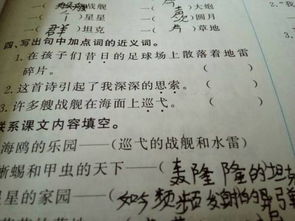 一( 艘 )战舰 一( )大炮
一( )星星 一( )圆月
一( 群 )坦克 一( 片 )草地
四、写出句中加点词的近义词。
1.在孩子们昔日的足球场上散落着地雷
碎片。 ( )
2.这首诗引起了我深深的思索。( )
3.许多艘战舰在海面上巡弋。( )
联系课文内容填空。
海鸥的乐园——(巡弋的战舰和水雷)
蜥蜴和甲虫的天下——(轰隆隆的坦
星星的家园——(如